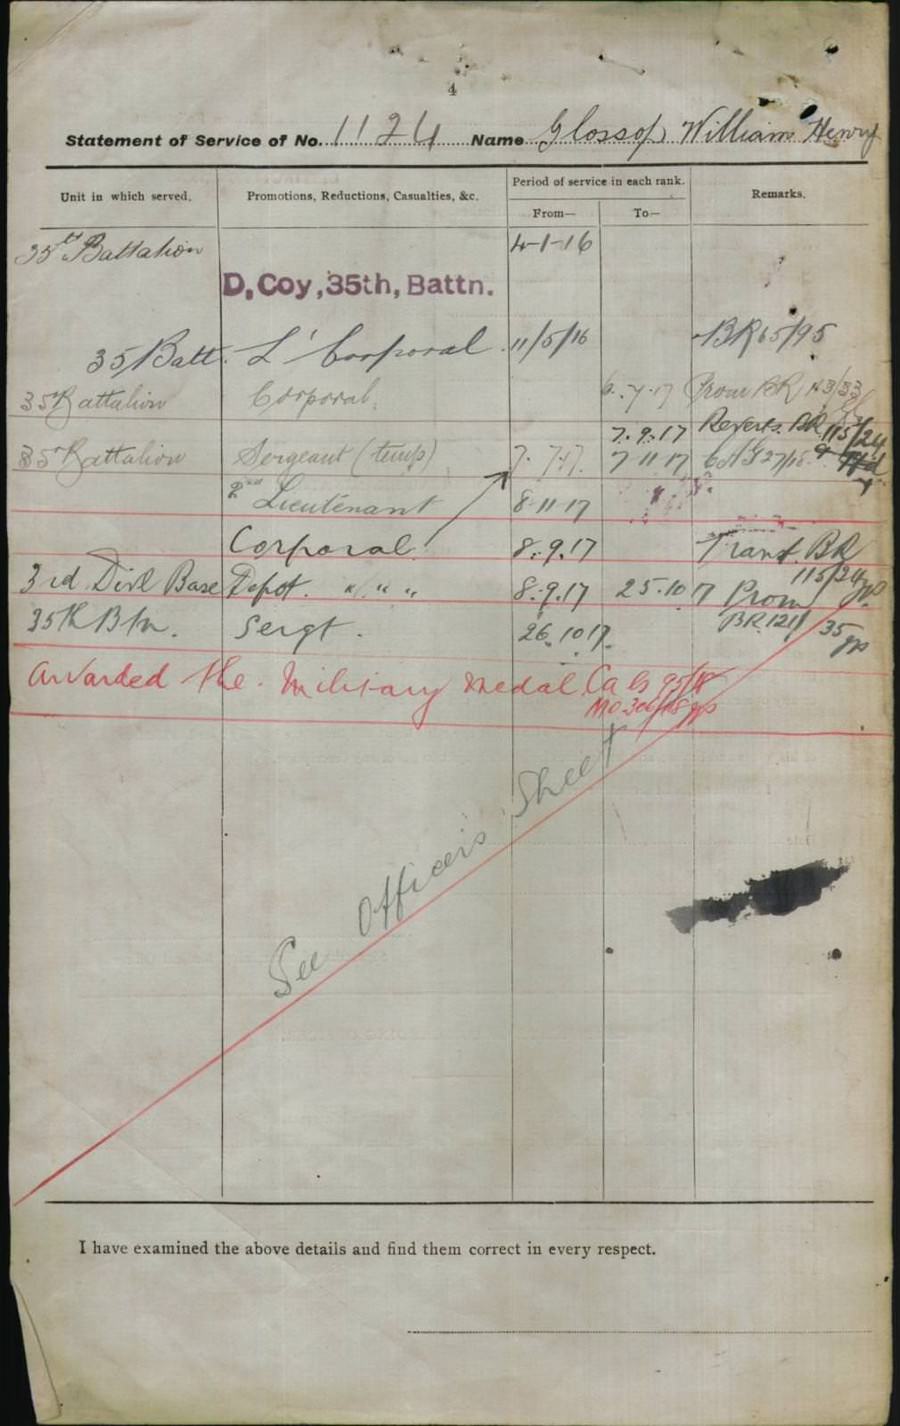 4
Statement of Service of No. 1124 Name Glossop William Henry
Unit in which served. Promotions, Reductions, Casualties, &c. Period of service in each rank. Remarks.
From— To—
35th Battalion 4-1-16
D, Coy, 35th, Battn.
35 Batt. L' Corporal 11/5/16 BR 65/95
35 Battalion Corporal 6.7.17 Prom BR
7.9.17 Reverts. BR 115/24
35 Battalion Sergeant (temp) 7.7.17. 7 11 17
2nd Lieutenant 8-11-17
Corporal 8.9.17 Transf. BR
115/24
3rd Divl Base Depot. " " " 8.9.17 25.10 17 Prom
35th Btn. Sergt. 26.10 17. BR 121/35
Awarded the Military Medal
See Officers Sheet
I have examined the above details and find them correct in every respect.